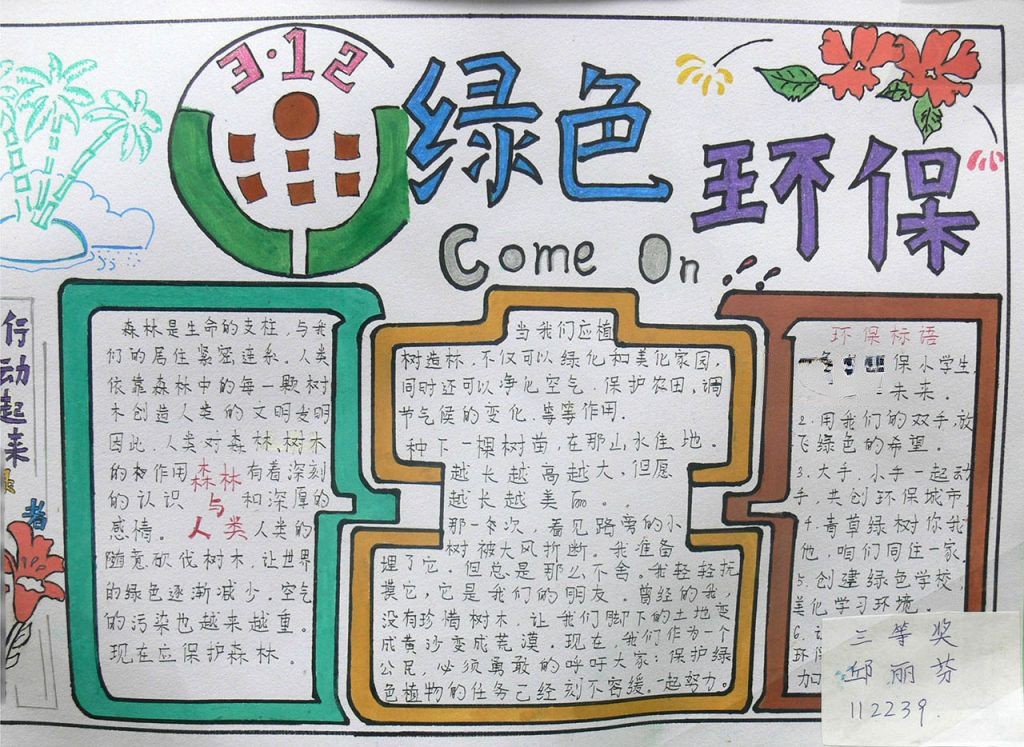 3·12
绿色
环保
Come On
行动起来
森林是生命的支柱,与我
们的居住紧密连系。人类
依靠森林中的每一颗树
木创造人类的文明发明
因此,人类对森林,树木
的作用 森林 有着深刻
的认识 与 和深厚的
感情。 人类 人类的
随意砍伐树木,让世界
的绿色逐渐减少。空气
的污染也越来越重。
现在应保护森林。
当我们应植
树造林,不仅可以绿化和美化家园,
同时还可以净化空气,保护农田,调
节气候的变化,等等作用。
种下一棵树苗,在那山水佳地。
越长越高越大,但愿
越长越美丽。
那一次,看见路旁的小
树被大风折断。我准备
埋了它,但总是那么不舍。我轻轻抚
摸它,它是我们的朋友。曾经的我,
没有珍惜树木,让我们脚下的土地变
成黄沙变成荒漠。现在,我们作为一个
公民,必须勇敢的呼吁大家:保护绿
色植物的任务已经刻不容缓。一起努力。
环保标语
保小学生,
未来。
2.用我们的双手,放
飞绿色的希望。
3.大手,小手一起动
手,共创环保城市
4.青草绿树你我
他,咱们同住一家
5.创建绿色学校,
美化学习环境。
6.
环保
加
三等奖
邱丽芬
112239.